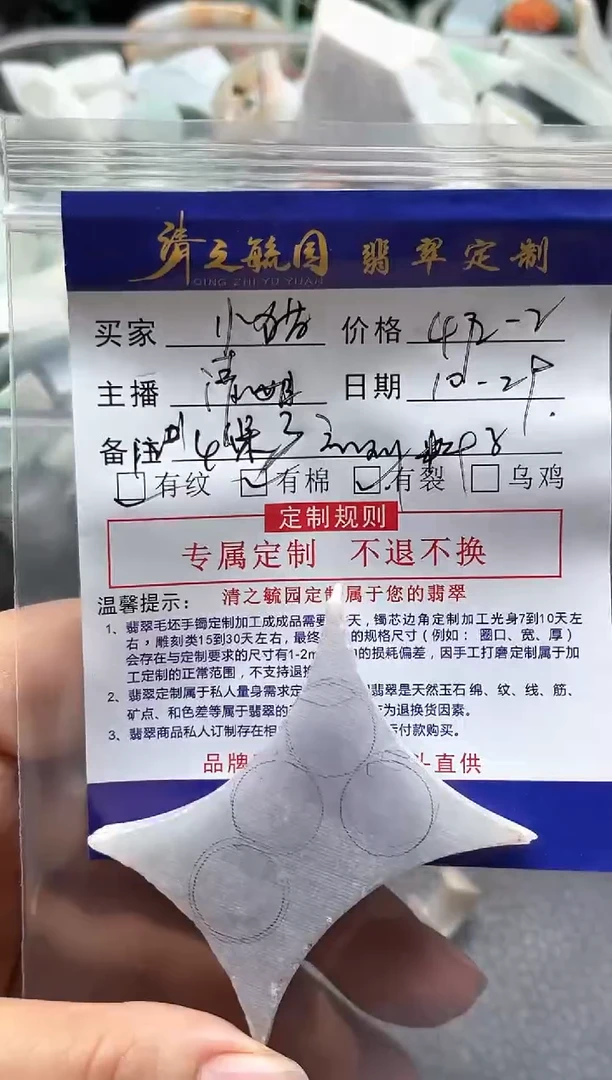 清之毓园 翡翠定制
QING ZHI YU YUAN
买家 价格
主播 日期 10-29
备注 4保3
有纹 有棉 有裂 乌鸡
定制规则
专属定制 不退不换
清之毓园定制属于您的翡翠
温馨提示:
1、翡翠毛坯手镯定制加工成成品需要 天,镯芯边角定制加工光身7到10天左
右,雕刻类15到30天左右,最终 的规格尺寸(例如: 圈口、宽、厚)
会存在与定制要求的尺寸有1-2m 的损耗偏差,因手工打磨定制属于加
工定制的正常范围,不支持退换
2、翡翠定制属于私人量身需求定 翡翠是天然玉石 绵、纹、线、筋、
矿点、和色差等属于翡翠的 为退换货因素。
3、翡翠商品私人订制存在相 付款购买。
品牌 头直供